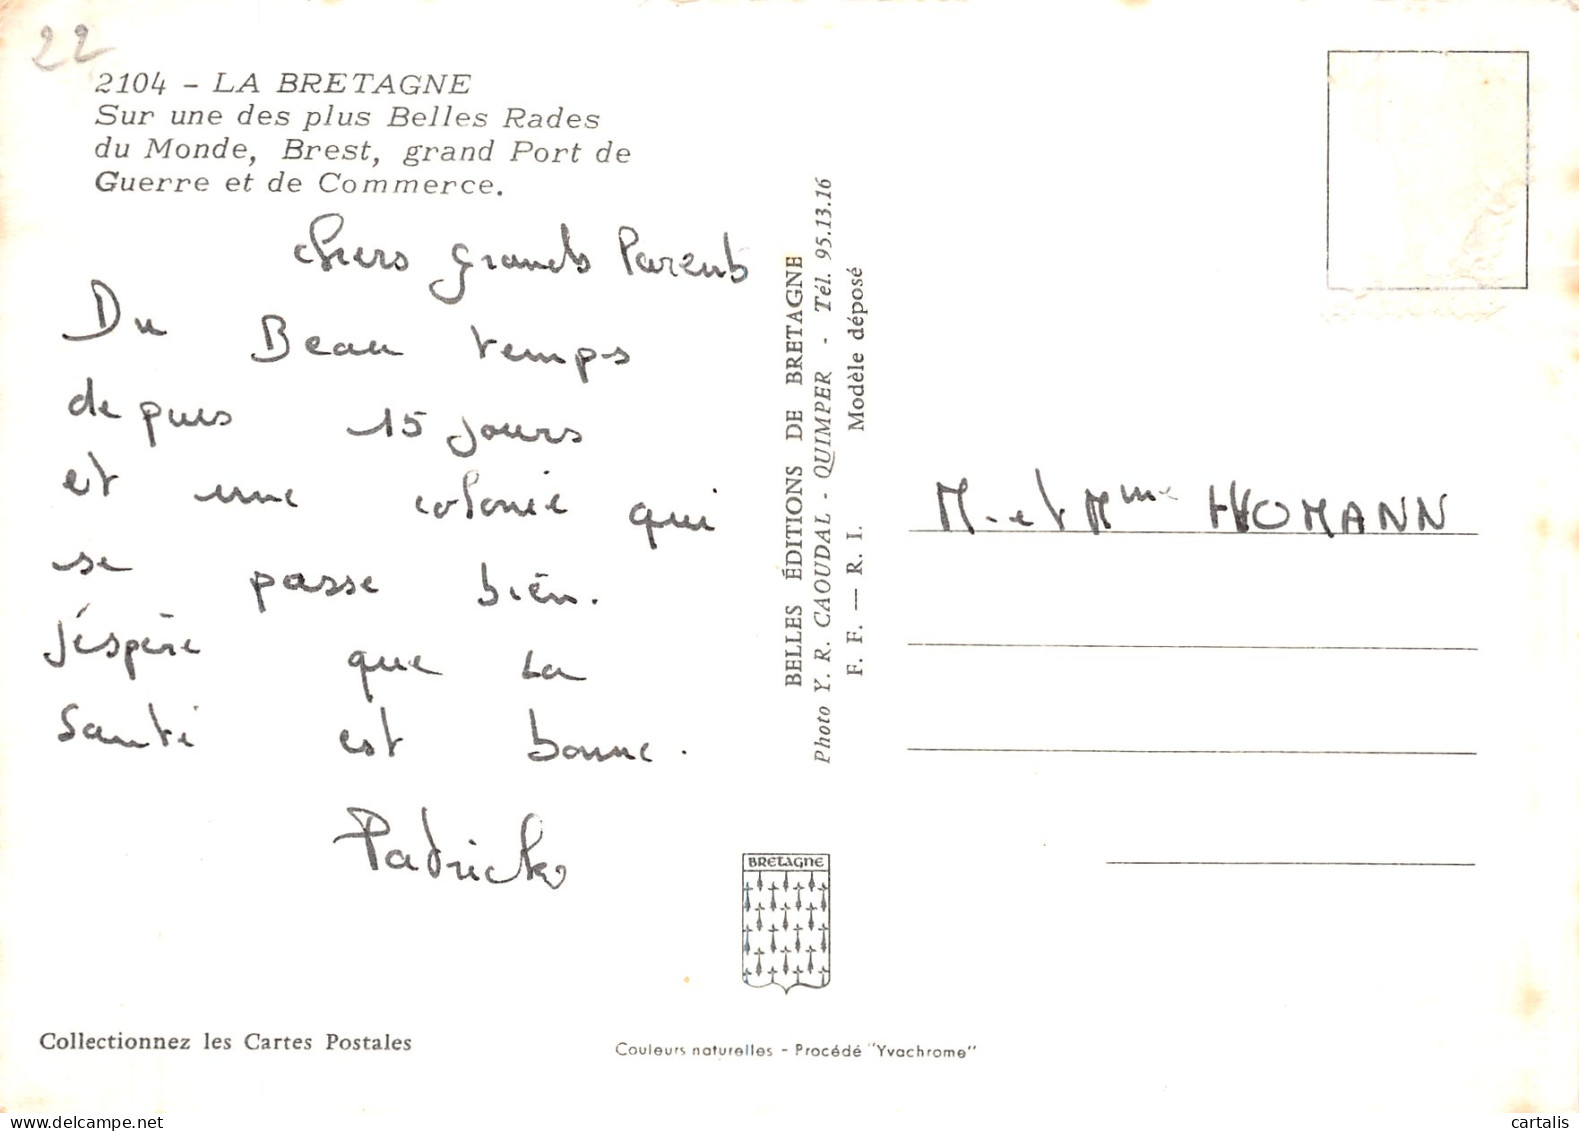 22
2104 - LA BRETAGNE
Sur une des plus Belles Rades
du Monde, Brest, grand Port de
Guerre et de Commerce.
chers grands Parents
Du Beau temps
depuis 15 jours
et une colonie qui
se passe bien.
J'éspère que la
Santé est bonne.
Patrick
BELLES ÉDITIONS DE BRETAGNE
Photo Y. R. CAOUDAL - QUIMPER - Tél. 95.13.16
F. F. — R. I. Modèle déposé
M. et Mme HOMANN
BRETAGNE
Collectionnez les Cartes Postales
Couleurs naturelles - Procédé "Yvachrome"
cartalis